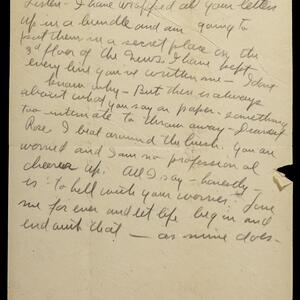 Listen - I have wrapped all your letters
up in a bundle and am going to
put them in a secret place on the
3rd floor of the News. I have kept
every line you've written me - I don't
know why - But there is always
about what you say on paper - something
too intimate to throw away - Dearest
Rose I beat around the bush. You are
worried and I am no professional
cheerer up. All I say - honestly -
is "to hell with your worries". Love
me for ever and let life begin and
end with that - as mine does -